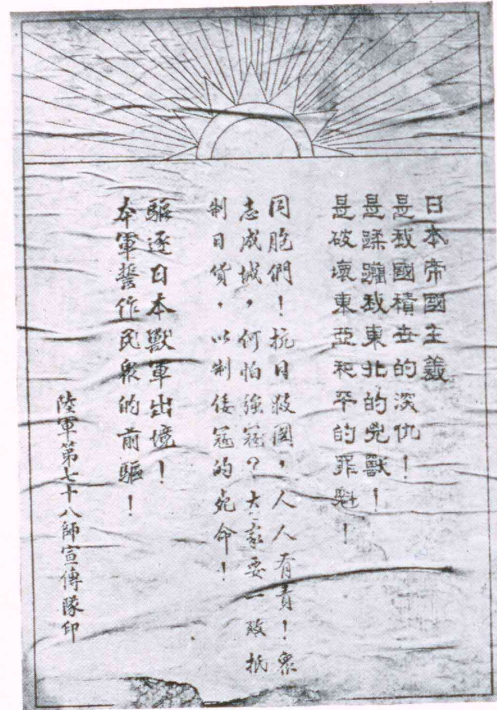 日本帝國主義
是我國積世的深仇！
是蹂躪我東北的兇獸！
是破壞東亞和平的罪魁！
同胞們！抗日救國，人人有責！眾
志成城，何怕強寇？大家要一致抵
制日貨，以制倭寇的死命！
驅逐日本獸軍出境！
本軍誓作民眾的前驅！
陸軍第七十八師宣傳隊印